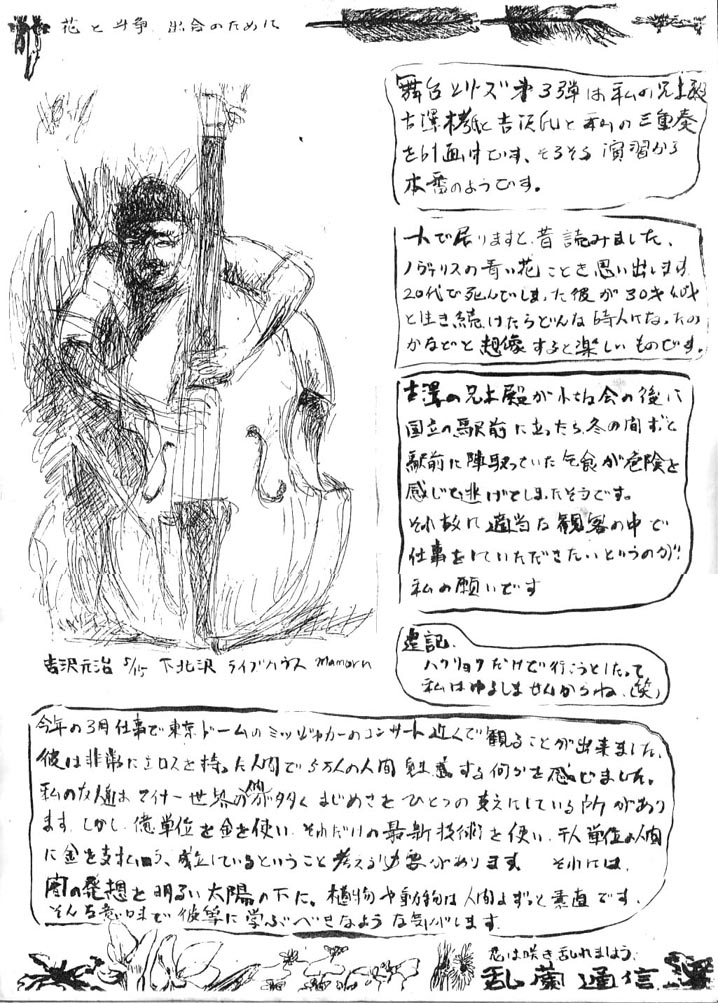 花と斗争 出会のために
舞台シリーズ 第3弾は私の兄上殿
古澤 氏と吉沢氏と私の三重奏
を計画中です、そろそろ演習から
本番のようです。
一人で居りますと昔読みました、
ノヴァリスの青い花ことを思い出します
20代で死んでしまった彼が30才40才
と生き続けたらどんな詩人になったの
かなどと想像すると楽しいものです。
古澤の兄上殿が小さな会の後に
国立の駅前に立ったら、冬の間ずっと
駅前に陣取っていた乞食が危険を
感じて逃げてしまったそうです。
それ故に適当な観客の中で
仕事をしていただきたいというのが
私の願いです
追記.
ハクリョクだけで行こうとしたって
私はゆるしませんからね、(笑)
吉沢元治 5/15 下北沢 ライブハウス mamoru
今年の3月仕事で東京ドームのミックジャガーのコンサート近くで観ることが出来ました、
彼は非常にエロスを持った人間で5万人の人間 魅惑する何かを感じました。
私の友達は マイナー世界の がタタク まじめさをひとつの支えにしている所があり
ます しかし 億単位を金を使い それだけの最新技術を使い、千人単位の人間
に金を支払う、成立しているということ考える必要があります それには、
闇の発想を明るい太陽の下に。植物や動物は人間よりずっと素直です、
そんな意味まで彼等に学ぶべきなような気がします
花は咲き乱れましよう.
乱蘭通信